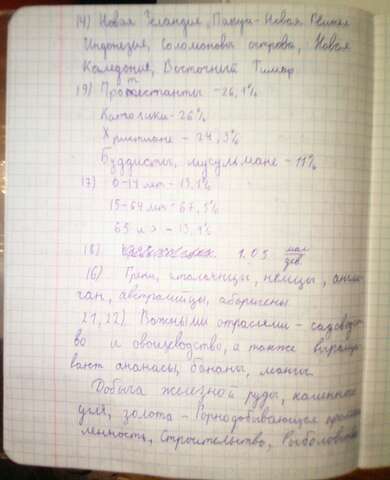 14) Новая Зеландия, Папуа-Новая Гвинея
Индонезия, Соломоновы острова, Новая
Каледония, Восточный Тимор
19) Протестанты - 26,1%
Католики - 26%
Христиане - 24,3%
Буддисты, мусульмане - 11%
17) 0-14 лет - 19,1%
15-64 лет - 67,5%
65 и > - 13,1%
18) 1.05 мал/дев.
16) Греки, итальянцы, немцы, англи-
чан, австралийцы, аборигены
21,22) Важными отраслями - садоводст
во и овощеводство, а также выращи
вают ананасы, бананы, манги.
Добыча железной руды, каменного
угля, золота - Горнодобывающая промыш
ленность, Строительство, Рыболовство